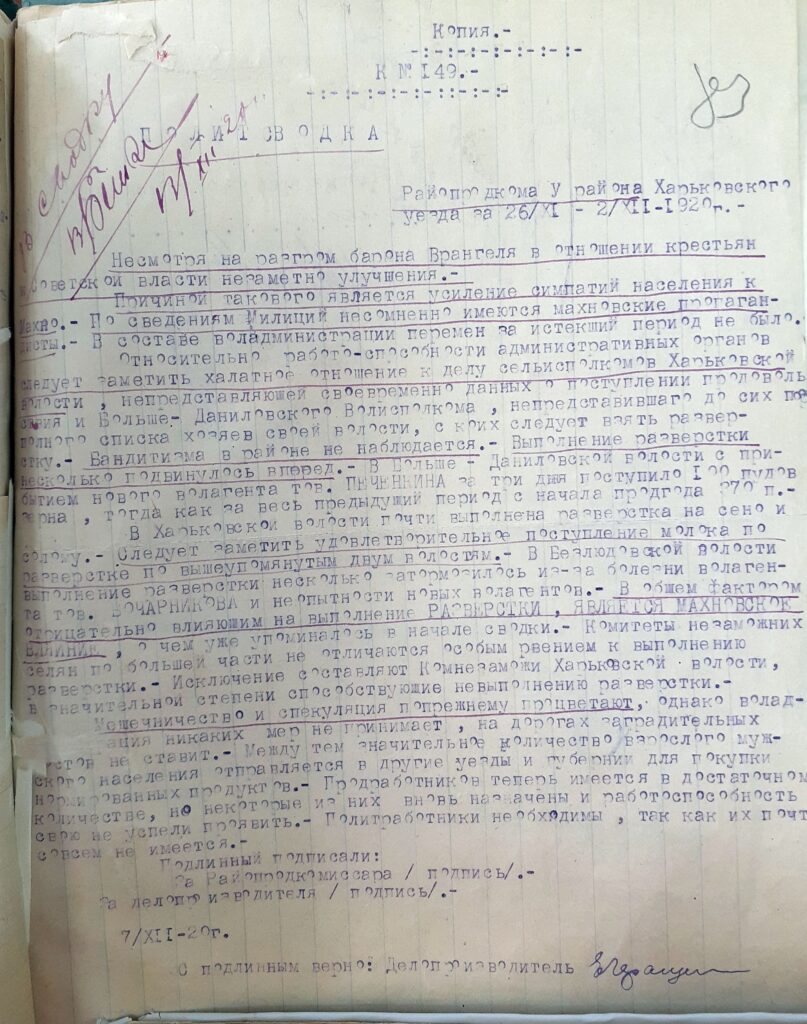 Копия.-
-:-:-:-:-:-:-:-
К № 149.-
-:-:-:-:-:-::-:-:-
ПОЛИТСВОДКА
Райопродкома У района Харьковского
уезда за 26/XI - 2/XII-1920г.-
Несмотря на разгром барона Врангеля в отношении крестьян
к Советской власти незаметно улучшения.-
Причиной такового является усиление симпатий населения к
Махно.- По сведениям Милиций несомненно имеются махновские пропаган-
дисты.- В составе воладминистрации перемен за истекший период не было.
Относительно работо-способности административных органов
следует заметить халатное отношение к делу сельисполкомов Харьковской
волости , непредставляющей своевременно данных о поступлении продоволь
ствия и Больше- Даниловского Волисполкома , непредставившего до сих пор
полного списка хозяев своей волости, с коих следует взять развер-
стку.- Бандитизма в районе не наблюдается.- Выполнение разверстки
несколько подвинулось вперед.- В Больше - Даниловской волости с при-
бытием нового волагента тов. ПЕЧЕНКИНА за три дня поступило 190 пудов
зерна , тогда как за весь предыдущий период с начала продгода 270 п.-
В Харьковской волости почти выполнена разверстка на сено и
солому.- Следует заметить удовлетворительное поступление молока по
разверстке по вышеупомянутым двум волостям.- В Безлюдовской волости
выполнение разверстки несколько затормозилось из-за болезни волаген-
та тов. БОЧАРНИКОВА и неопытности новых волагентов.- В общем фактором
отрицательно влияющим на выполнение РАЗВЕРСТКИ , ЯВЛЯЕТСЯ МАХНОВСКОЕ
ВЛИЯНИЕ , о чем уже упоминалось в начале сводки.- Комитеты незаможних
селян по большей части не отличаются особым рвением к выполнению
разверстки.- Исключение составляют Комнезаможи Харьковской волости,
в значительной степени способствующие невыполнению разверстки.-
Мошечничество и спекуляция попрежнему процветают, однако волад-
ация никаких мер не принимает , на дорогах заградительных
постов не ставит.- Между тем значительное количество взрослого муж-
ского населения отправляется в другие уезды и губернии для покупки
нормированных продуктов.- Продработников теперь имеется в достаточном
количестве, но некоторые из них вновь назначены и работоспособность
свою не успели проявить.- Политработники необходимы , так как их почт
совсем не имеется.-
Подлинный подписали:
За Райопродкомиссара / подпись/.-
За делопроизводителя / подпись/.-
7/XII-20г.
С подлинным верно: Делопроизводитель